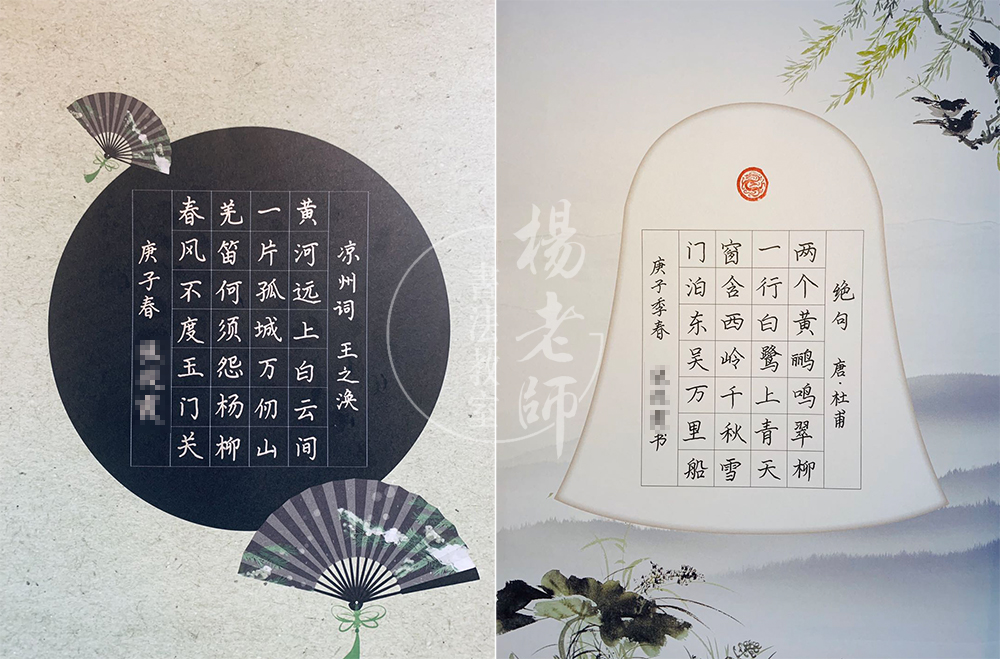 凉州词 王之涣
黄河远上白云间
一片孤城万仞山
羌笛何须怨杨柳
春风不度玉门关
庚子春
绝句 唐·杜甫
两个黄鹂鸣翠柳
一行白鹭上青天
窗含西岭千秋雪
门泊东吴万里船
庚子季春 书
楊老師
書法教室